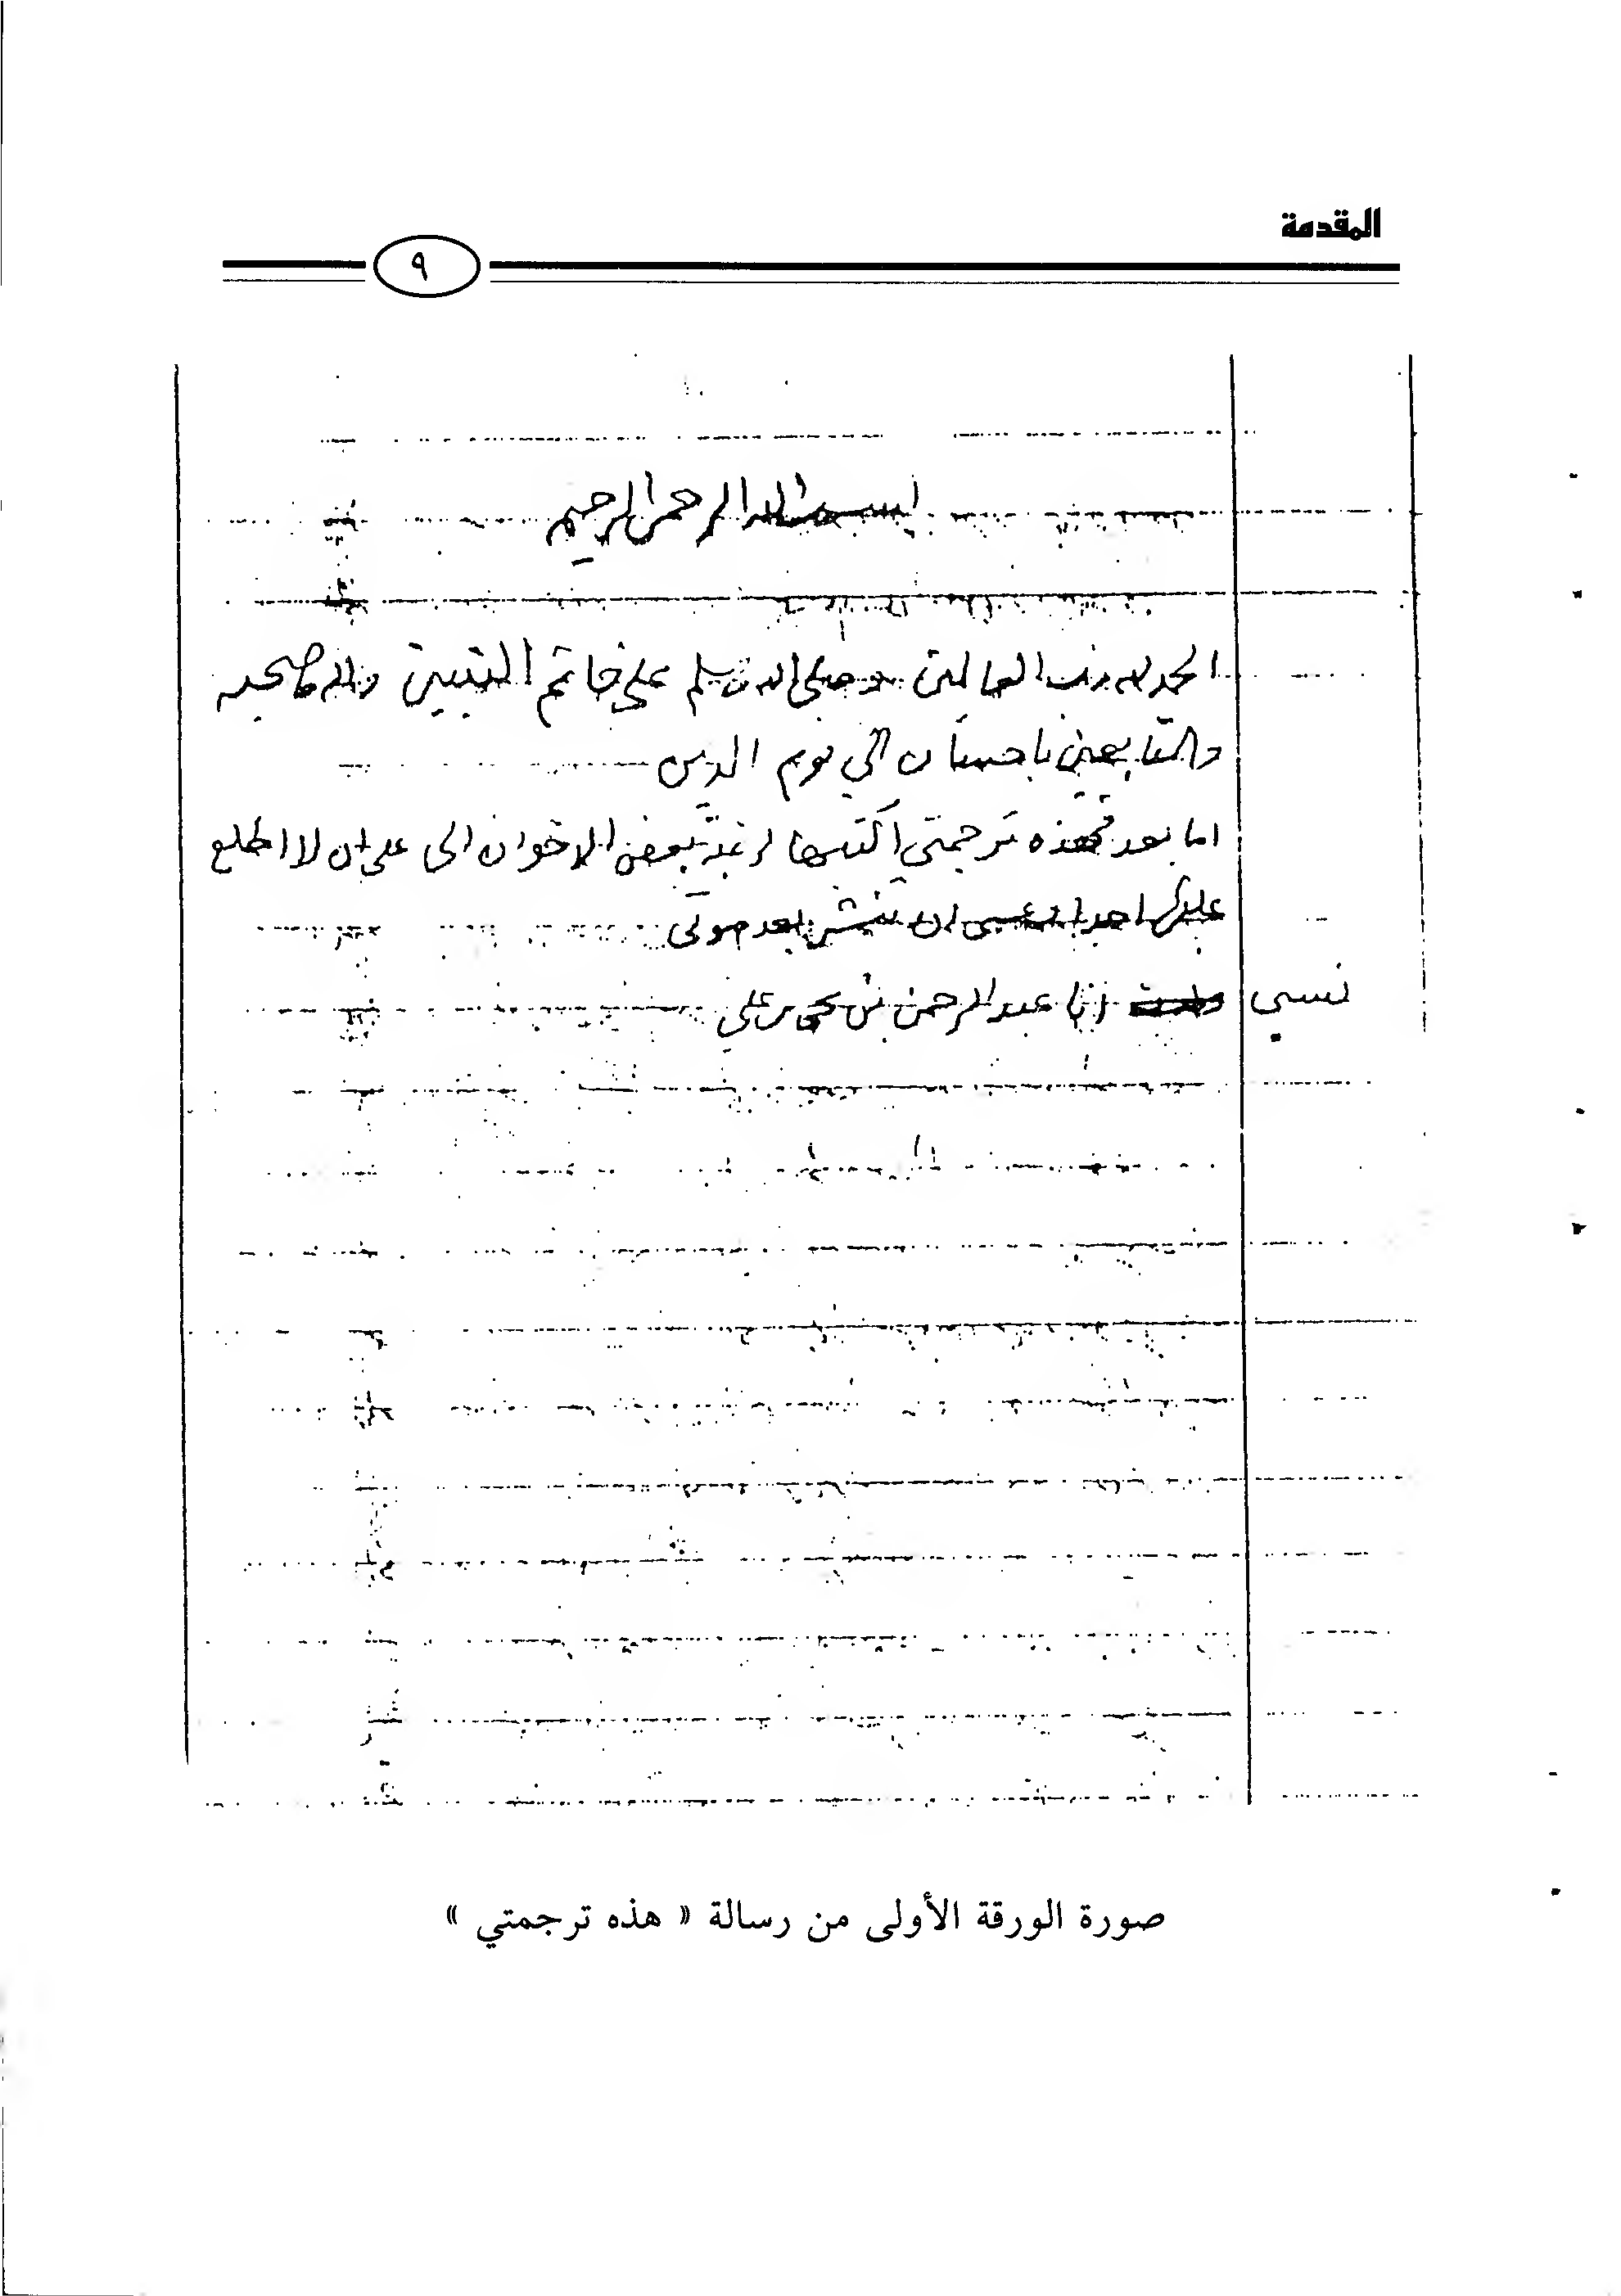 المقدمة
٩
بسم الله الرحمن الرحيم
الحمد لله رب العالمين وصلى الله وسلم على خاتم النبيين واله وصحبه
والتابعين باحسان الى يوم الدين
اما بعد فهذه ترجمتي اكتبها لرغبة بعض الاخوان الى على ان لا اطلع
عليها احدا وعسى ان تنشر بعد موتى
نسبى انا عبد الرحمن بن يحيى بن على
صورة الورقة الأولى من رسالة « هذه ترجمتي »